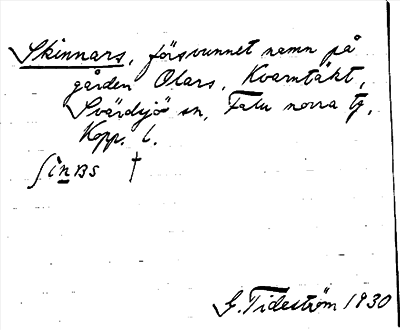 Skinnars, försvunnet namn på
gården Olars, Kvarntäkt,
Svärdsjö sn, Falu norra tg,
Kopp. l.
ʃinʙs †
G. Tideström 1930